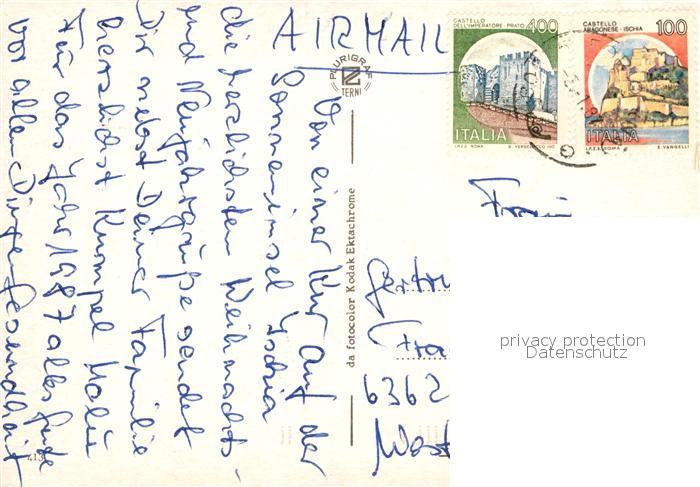 AIRMAIL
CASTELLO
DELL'IMPERATORE - PRATO
400
ITALIA
I.P.Z.S. ROMA
CASTELLO
ARAGONESE - ISCHIA
100
ITALIA
I.P.Z.S. ROMA
E. VANGELLI
PLURIGRAF
TERNI
da fotocolor Kodak Ektachrome
Von einer Kur auf der
Sonneninsel Ischia
die herzlichsten Weihnachts-
und Neujahrsgrüße sendet
Dir nebst Deiner Familie
herzlichst
Für das Jahr 1987 alles Gute
vor allen Dingen Gesundheit
Frau
Gertru
Fra
6362
Wöst
privacy protection
Datenschutz